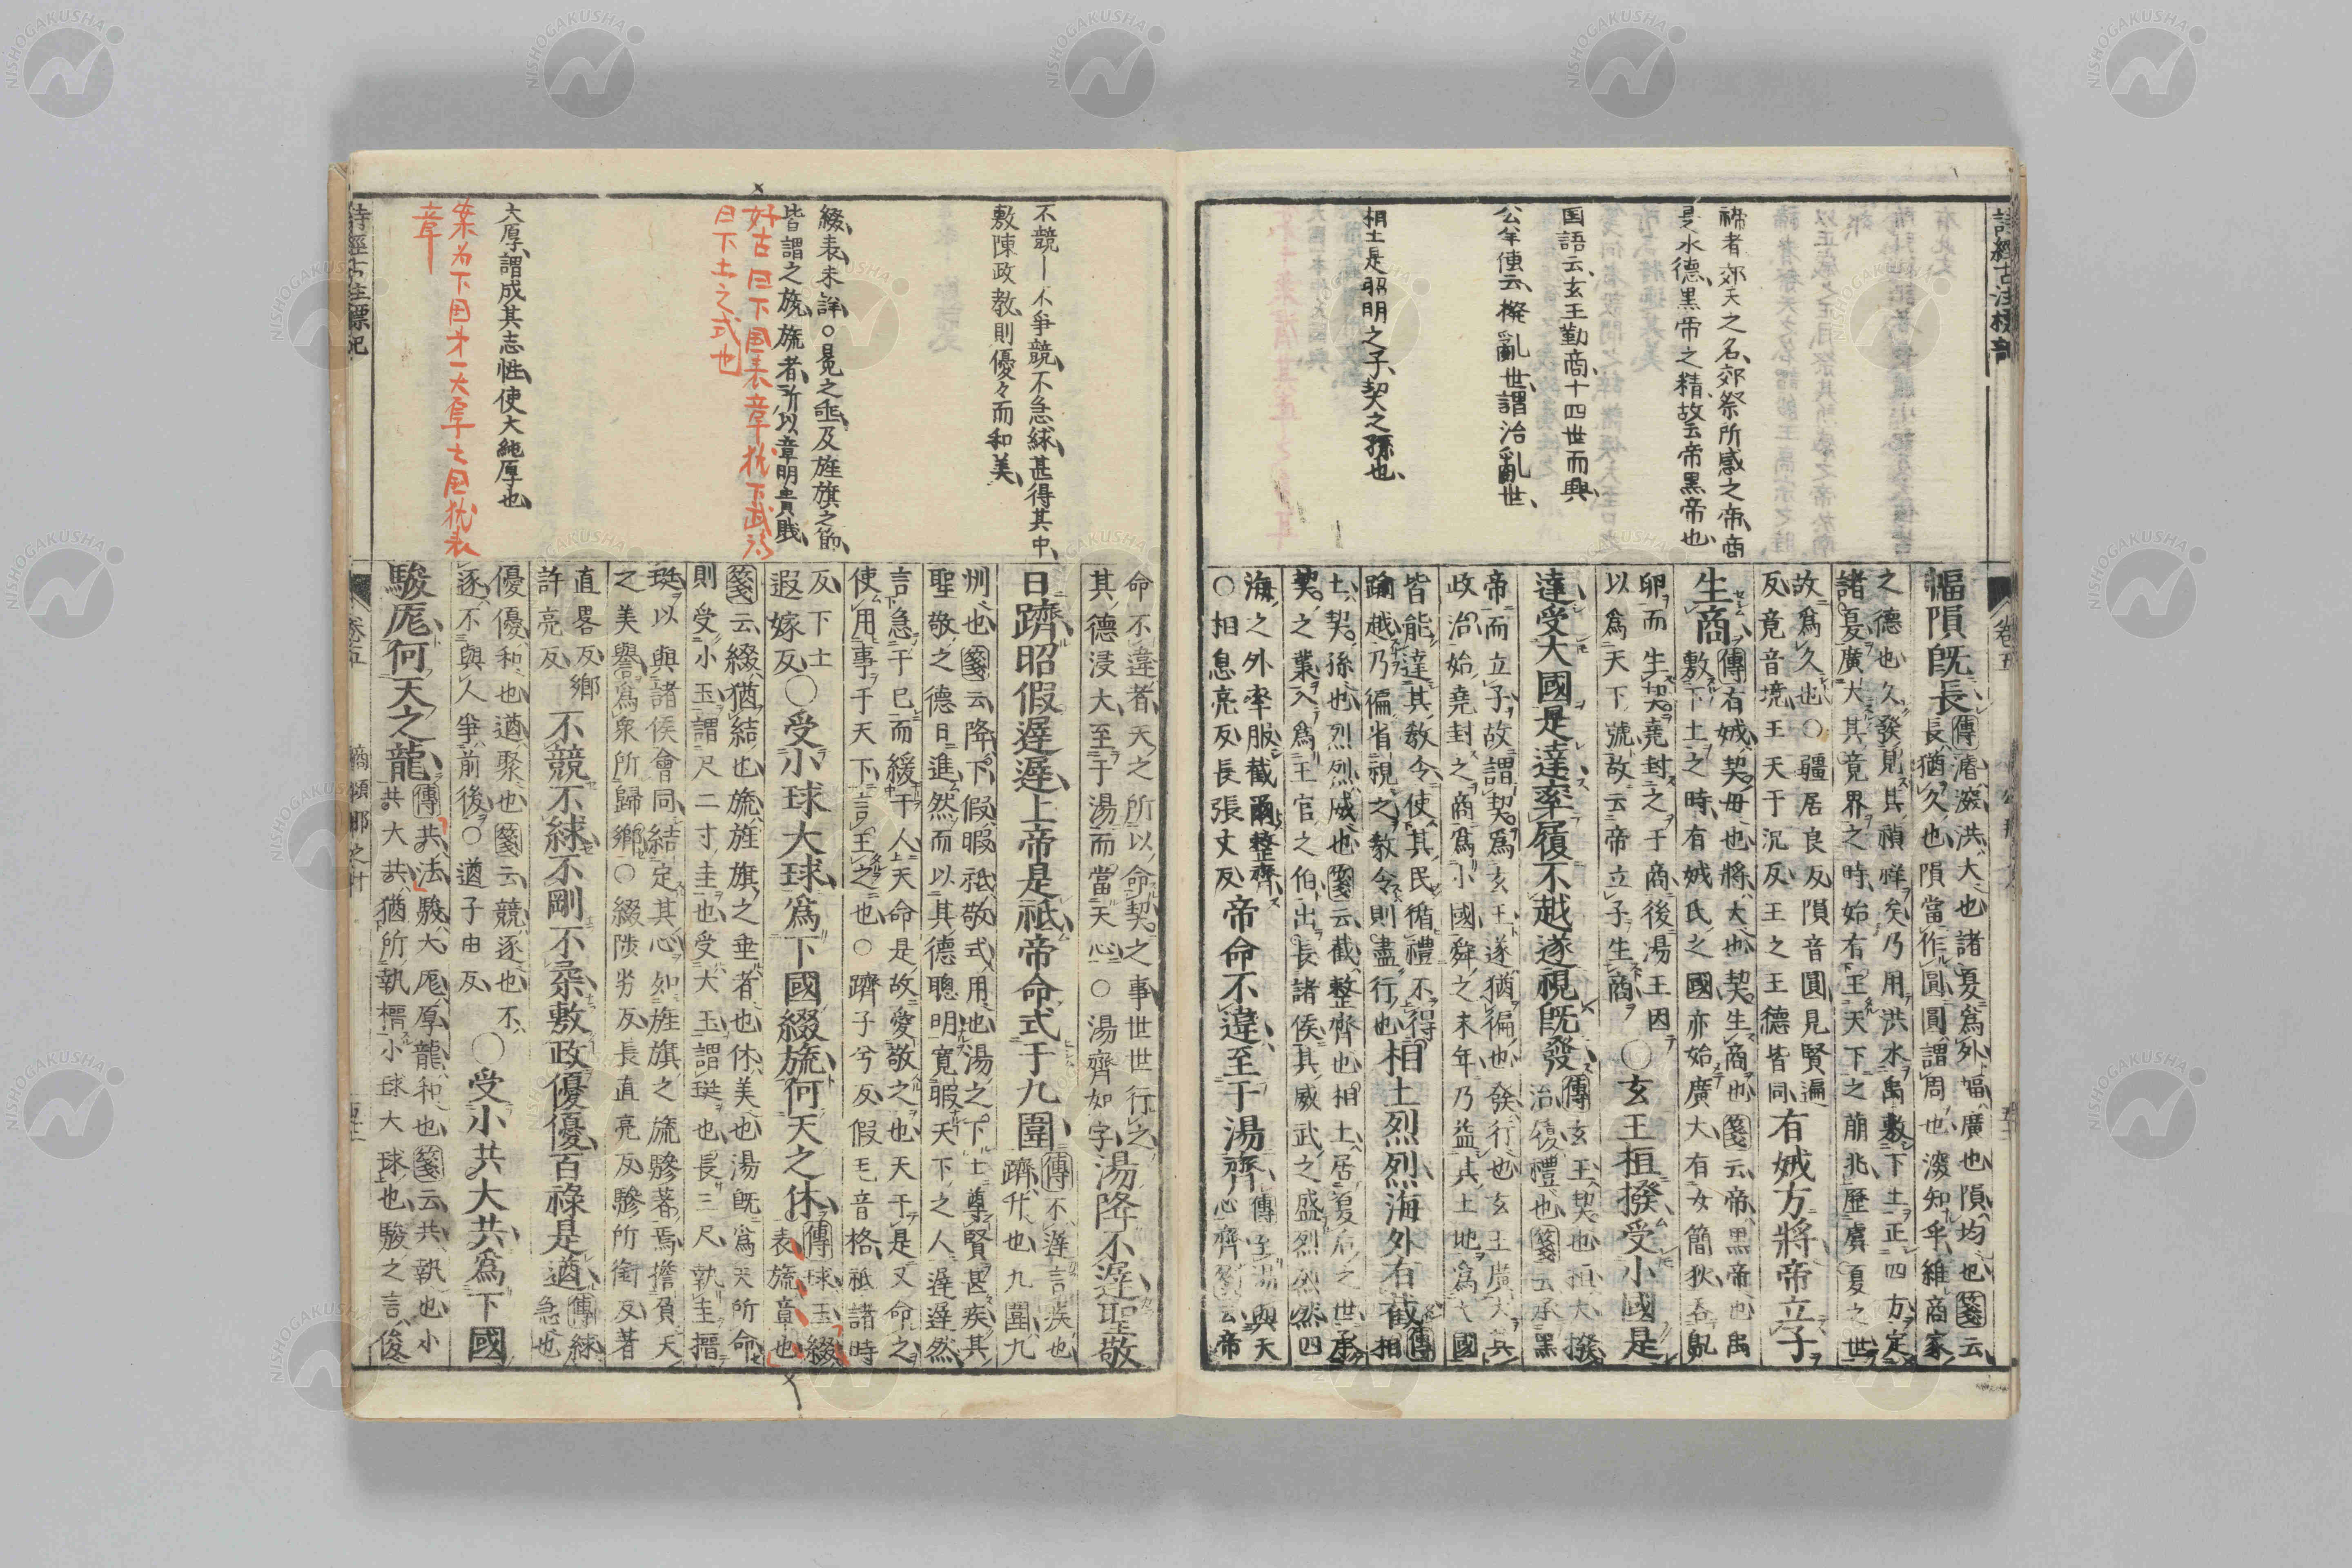 禘者郊天之名郊祭所感之帝商
是水德黒帝之精故云帝黒帝也
国語云玄王勤商十四世而興
公羊傳云撥亂世謂治亂世
相土是昭明之子契之孫也
卷五
幅隕既長
傳濬深洪大也諸夏爲外幅廣也隕均也箋云
長猶久也隕當作圓圓謂周也深知乎維商家
之德也久發見其禎祥矣乃用洪水禹敷下土正四方定
諸夏廣大其竟界之時始有王天下之萠兆歷虞夏之世
故爲久也○疆居良反隕音圓見賢遍
反竟音境王天于沉反王之王德皆同
有娀方將帝立子
生商
傳有娀契母也將大也契生商也箋云帝黒帝也禹
敷下土之時有娀氏之國亦始廣大有女簡狄呑鳦
卵而生契堯封之于商後湯王因
以爲天下號故云帝立子生商
○玄王桓撥受小國是
達受大國是達率履不越遂視既發
傳玄王契也桓大撥
治履禮也箋云承黒
帝而立子故謂契爲玄王遂猶徧也發行也玄王廣大其
政治始堯封之商爲小國舜之末年乃益其土地爲大國
皆能達其教令使其民循禮不得
踰越乃徧省視之教令則盡行也
相土烈烈海外有截
傳
相
土契孫也烈烈威也箋云截整齊也相土居夏后之世承
契之業入爲王官之伯出長諸侯其威武之盛烈烈然四
海之外率服截爾整齊
○相息亮反長張丈反
帝命不違至于湯齊
傳至湯與天
心齊箋云帝
不競―不爭競不急絿甚得其中
敷陳政教則優々而和美
綴表未詳○冕之垂及旌旗之飾
皆謂之旒旒者所以章明貴賤
好古曰下國表章猶下武爲
曰下土之式也
大厚謂成其志性使大純厚也
案爲下国才一大厚大国猶表
章
命不違者天之所以命契之事世世行之
其德浸大至于湯而當天心○湯齊如字
湯降不遲聖敬
日躋昭假遲遲上帝是祗帝命式于九圍
傳不遲言疾也
躋升也九圍九
州也箋云降下假暇祗敬式用也湯之下士尊賢甚疾其
聖敬之德日進然而以其德聰明寬暇天下之人遲遲然
言急于己而緩于人天命是故愛敬之也天于是又命之
使用事于天下言王之也○躋子兮反假毛音格祗諸時
反下士
遐嫁反
○受小球大球爲下國綴旒何天之休
傳球玉綴
表旒章也
箋云綴猶結也旒旌旗之垂者也休美也湯既爲天所命
則受小玉謂尺二寸圭也受大玉謂珽也長三尺執圭搢
珽以與諸侯會同結定其心如旌旗之旒縿著焉擔負天
之美譽爲衆所歸鄉○綴陟劣反長直亮反縿所銜反著
直畧反鄉
許亮反
不競不絿不剛不柔敷政優優百祿是遒
傳絿
急也
優優和也遒聚也箋云競逐也不
逐不與人爭前後○遒子由反
○受小共大共爲下國
駿厖何天之龍
傳共法駿大厖厚龍和也箋云共執也小
共大共猶所執搢小球大球也駿之言俊
詩經古注標記
卷五
商頌那之什